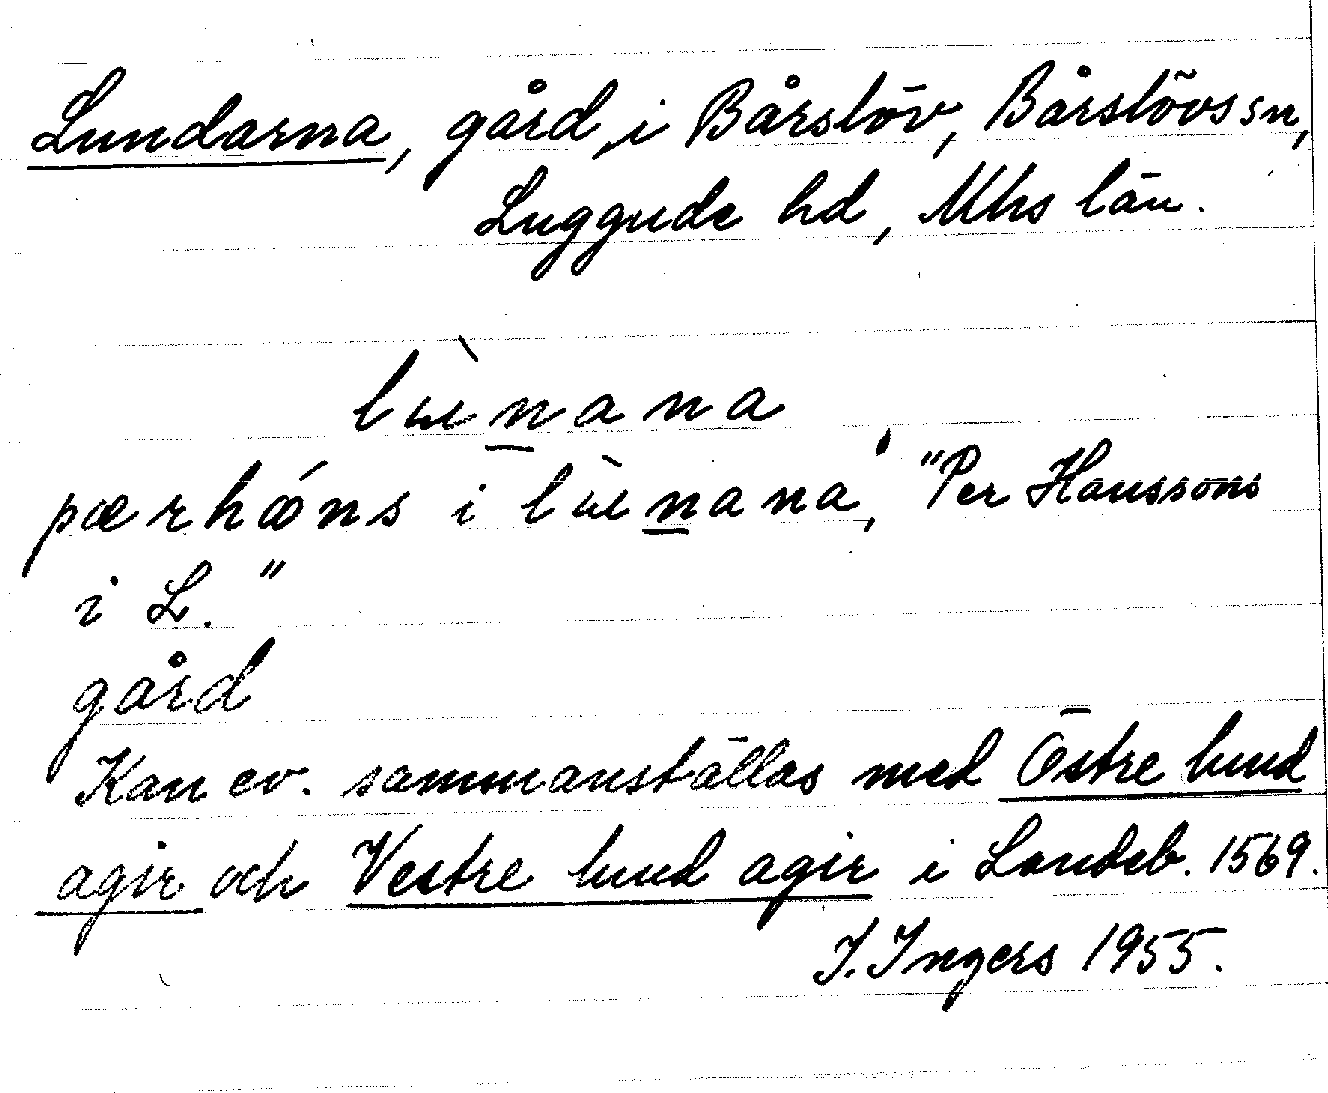 Lundarna, gård i Bårslöv, Bårslövs sn,
Luggude hd, Mhs län.
lùnana
pærhǿns i lùnana, "Per Hanssons
i L."
gård
Kan ev. sammanställas med Östre lund
agir och Vestre lund agir i Landeb. 1569.
I. Ingers 1955.